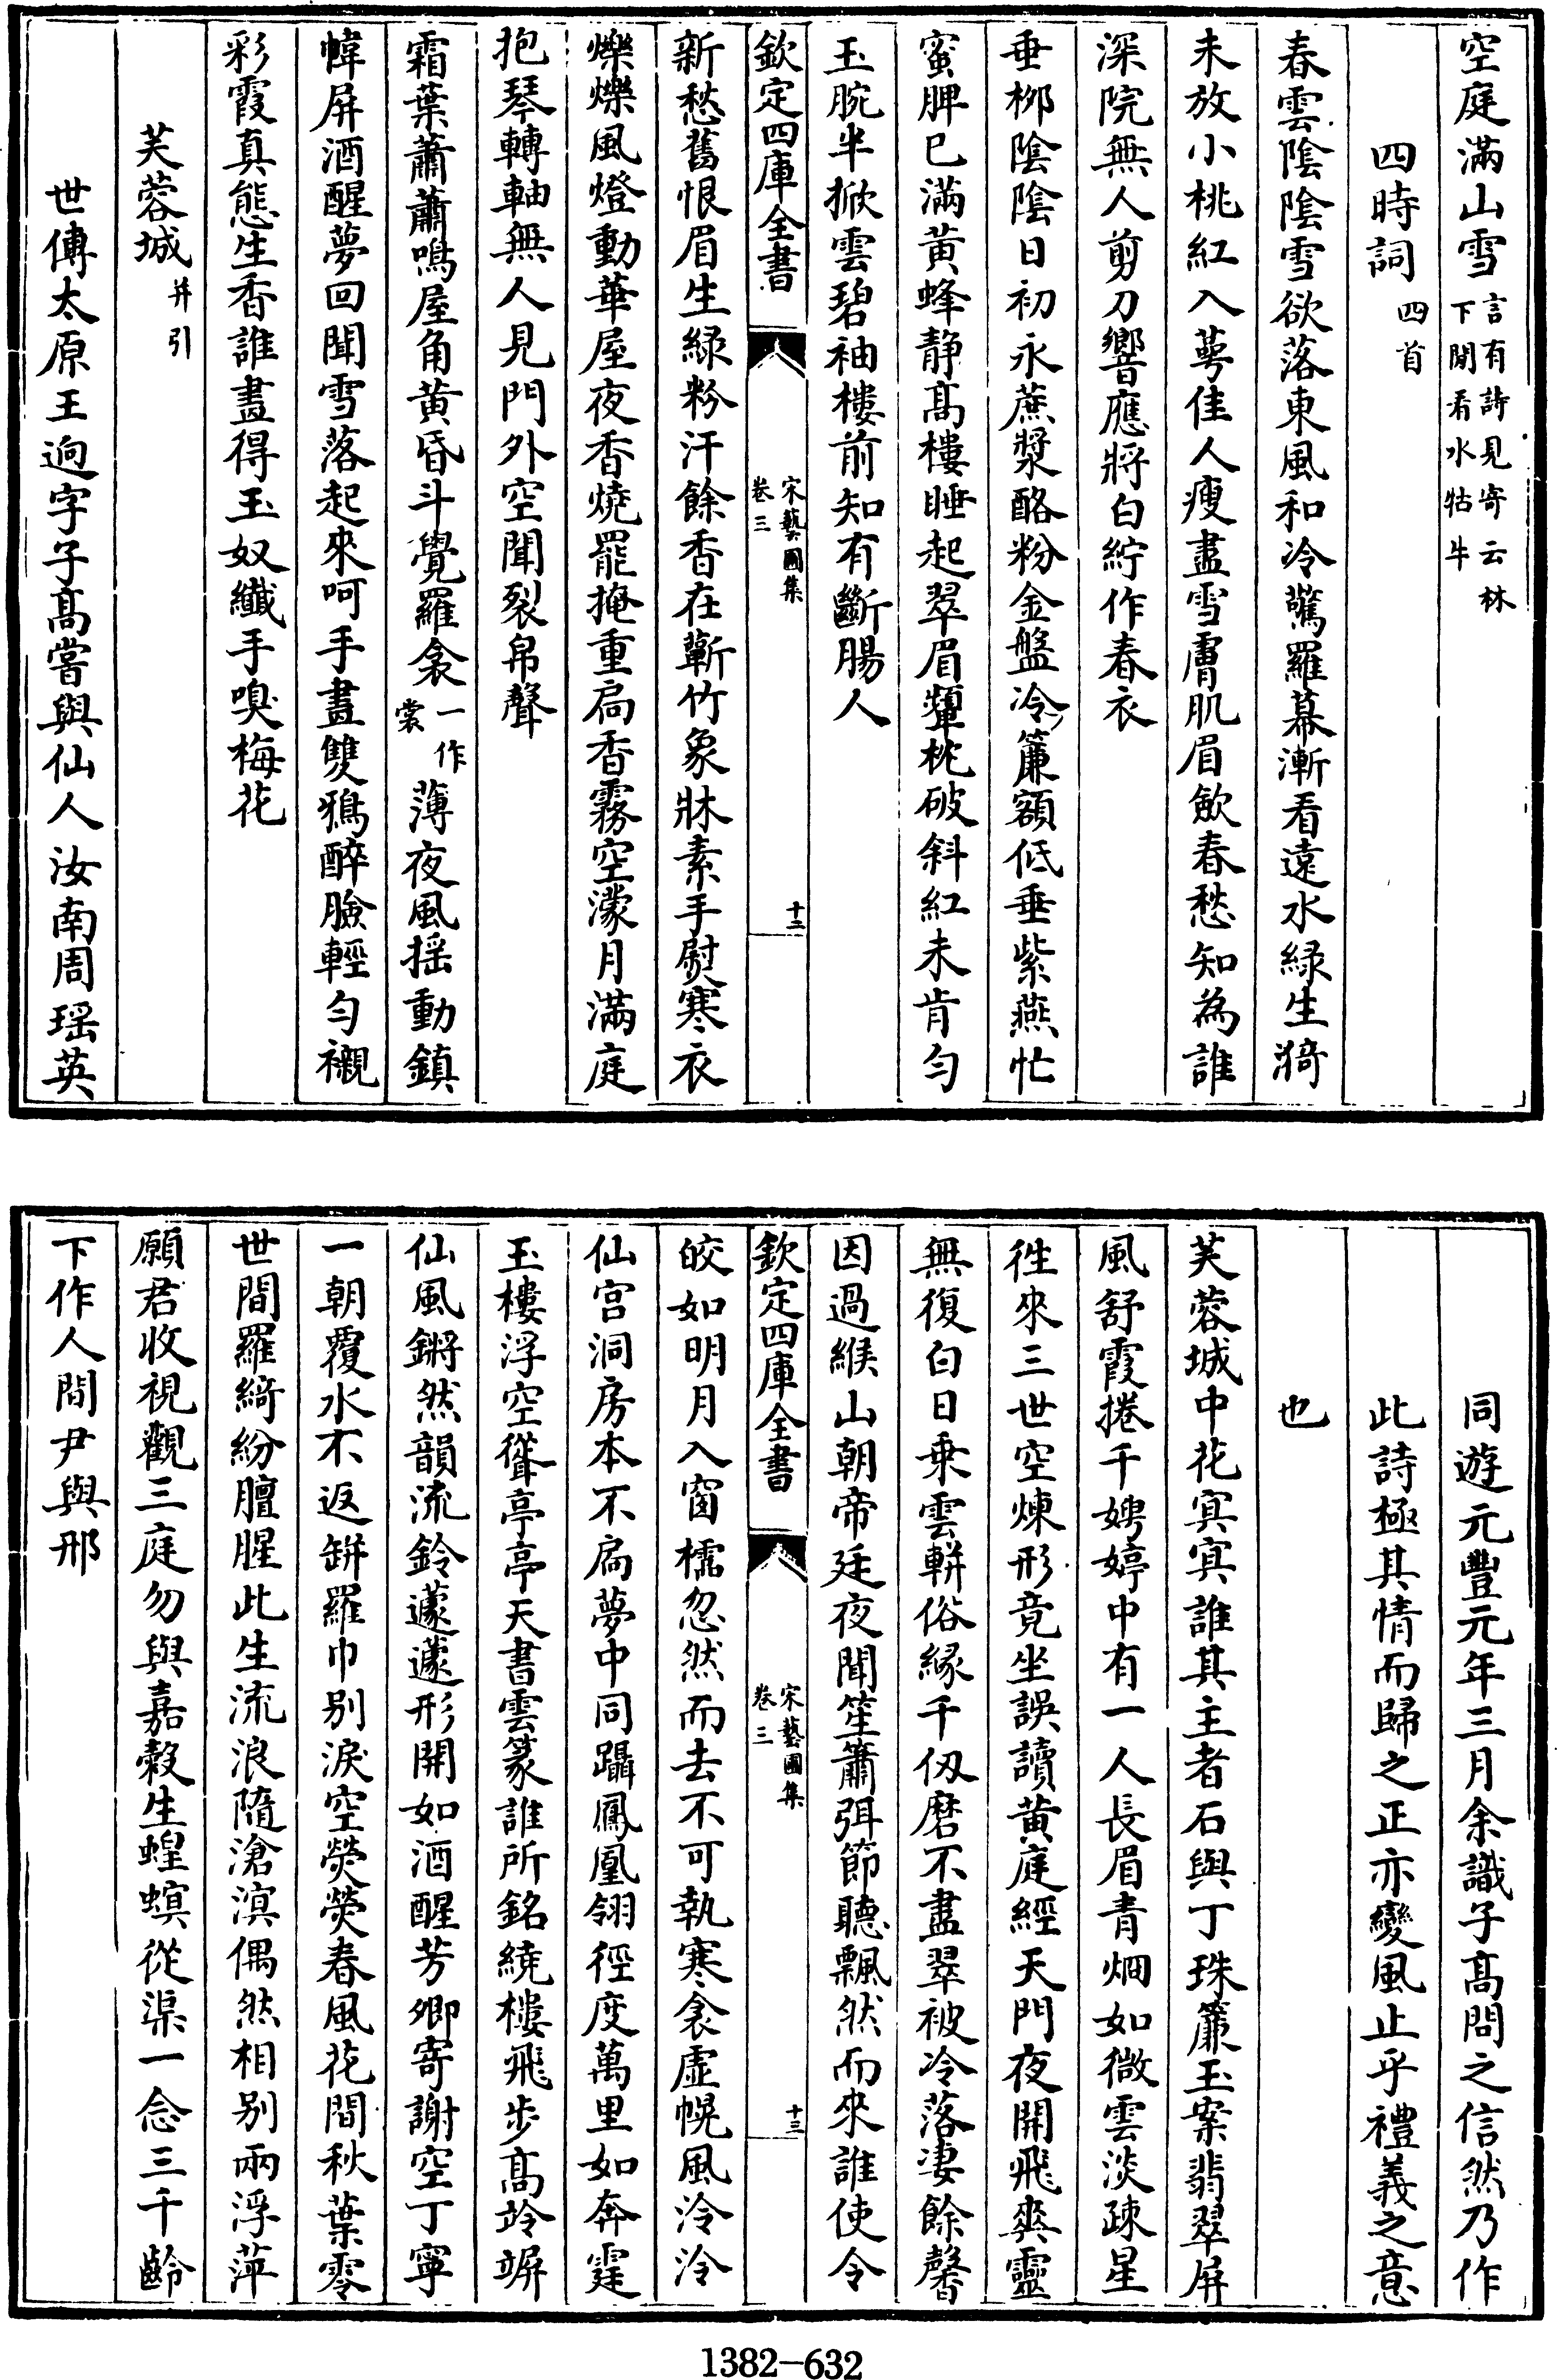 空庭滿山雪言有詩見寄云林下閒看水牯牛
四時詞四首
春雲陰陰雪欲落東風和冷驚羅幕漸看遠水綠生漪
未放小桃紅入萼佳人瘦盡雪膚肌眉歛春愁知為誰
深院無人剪刀響應將白紵作春衣
垂柳陰陰日初永蔗漿酪粉金盤冷簾額低垂紫燕忙
蜜脾已滿黄蜂静髙樓睡起翠眉顰枕破斜紅未肯勻
玉腕半掀雲碧袖樓前知有斷腸人
欽定四庫全書
宋藝圃集
卷三
十二
新愁舊恨眉生緑粉汗餘香在蘄竹象牀素手熨寒衣
爍爍風燈動華屋夜香燒罷掩重扃香霧空濛月滿庭
抱琴轉軸無人見門外空聞裂帛聲
霜葉蕭蕭鳴屋角黄昏斗覺羅衾一作裳薄夜風揺動鎮
幃屏酒醒夢回聞雪落起來呵手畫雙鴉醉臉輕勻襯
彩霞真態生香誰畫得玉奴纖手嗅梅花
芙蓉城并引
世傳太原王逈字子髙嘗與仙人汝南周瑶英
同遊元豐元年三月余識子髙問之信然乃作
此詩極其情而歸之正亦變風止乎禮義之意
也
芙蓉城中花㝠㝠誰其主者石與丁珠簾玉案翡翠屏
風舒霞捲千娉婷中有一人長眉青烱如微雲淡疎星
徃來三世空煉形竟坐誤讀黄庭經天門夜開飛爽靈
無復白日乗雲軿俗縁千刼磨不盡翠被冷落淒餘馨
因過緱山朝帝廷夜聞笙簫弭節聽飄然而來誰使令
欽定四庫全書
宋藝圃集
卷三
十三
皎如明月入窗櫺忽然而去不可執寒衾虚幌風泠泠
仙宫洞房本不扃夢中同躡鳳凰翎徑度萬里如奔霆
玉樓浮空聳亭亭天書雲篆誰所銘繞樓飛步髙竛竮
仙風鏘然韻流鈴蘧蘧形開如酒醒芳卿寄謝空丁寧
一朝覆水不返缾羅巾别淚空熒熒春風花開秋葉零
世間羅綺紛膻腥此生流浪隨滄溟偶然相别兩浮萍
願君收視觀三庭勿與嘉穀生蝗螟從渠一念三千齡
下作人間尹與邢
1382-632